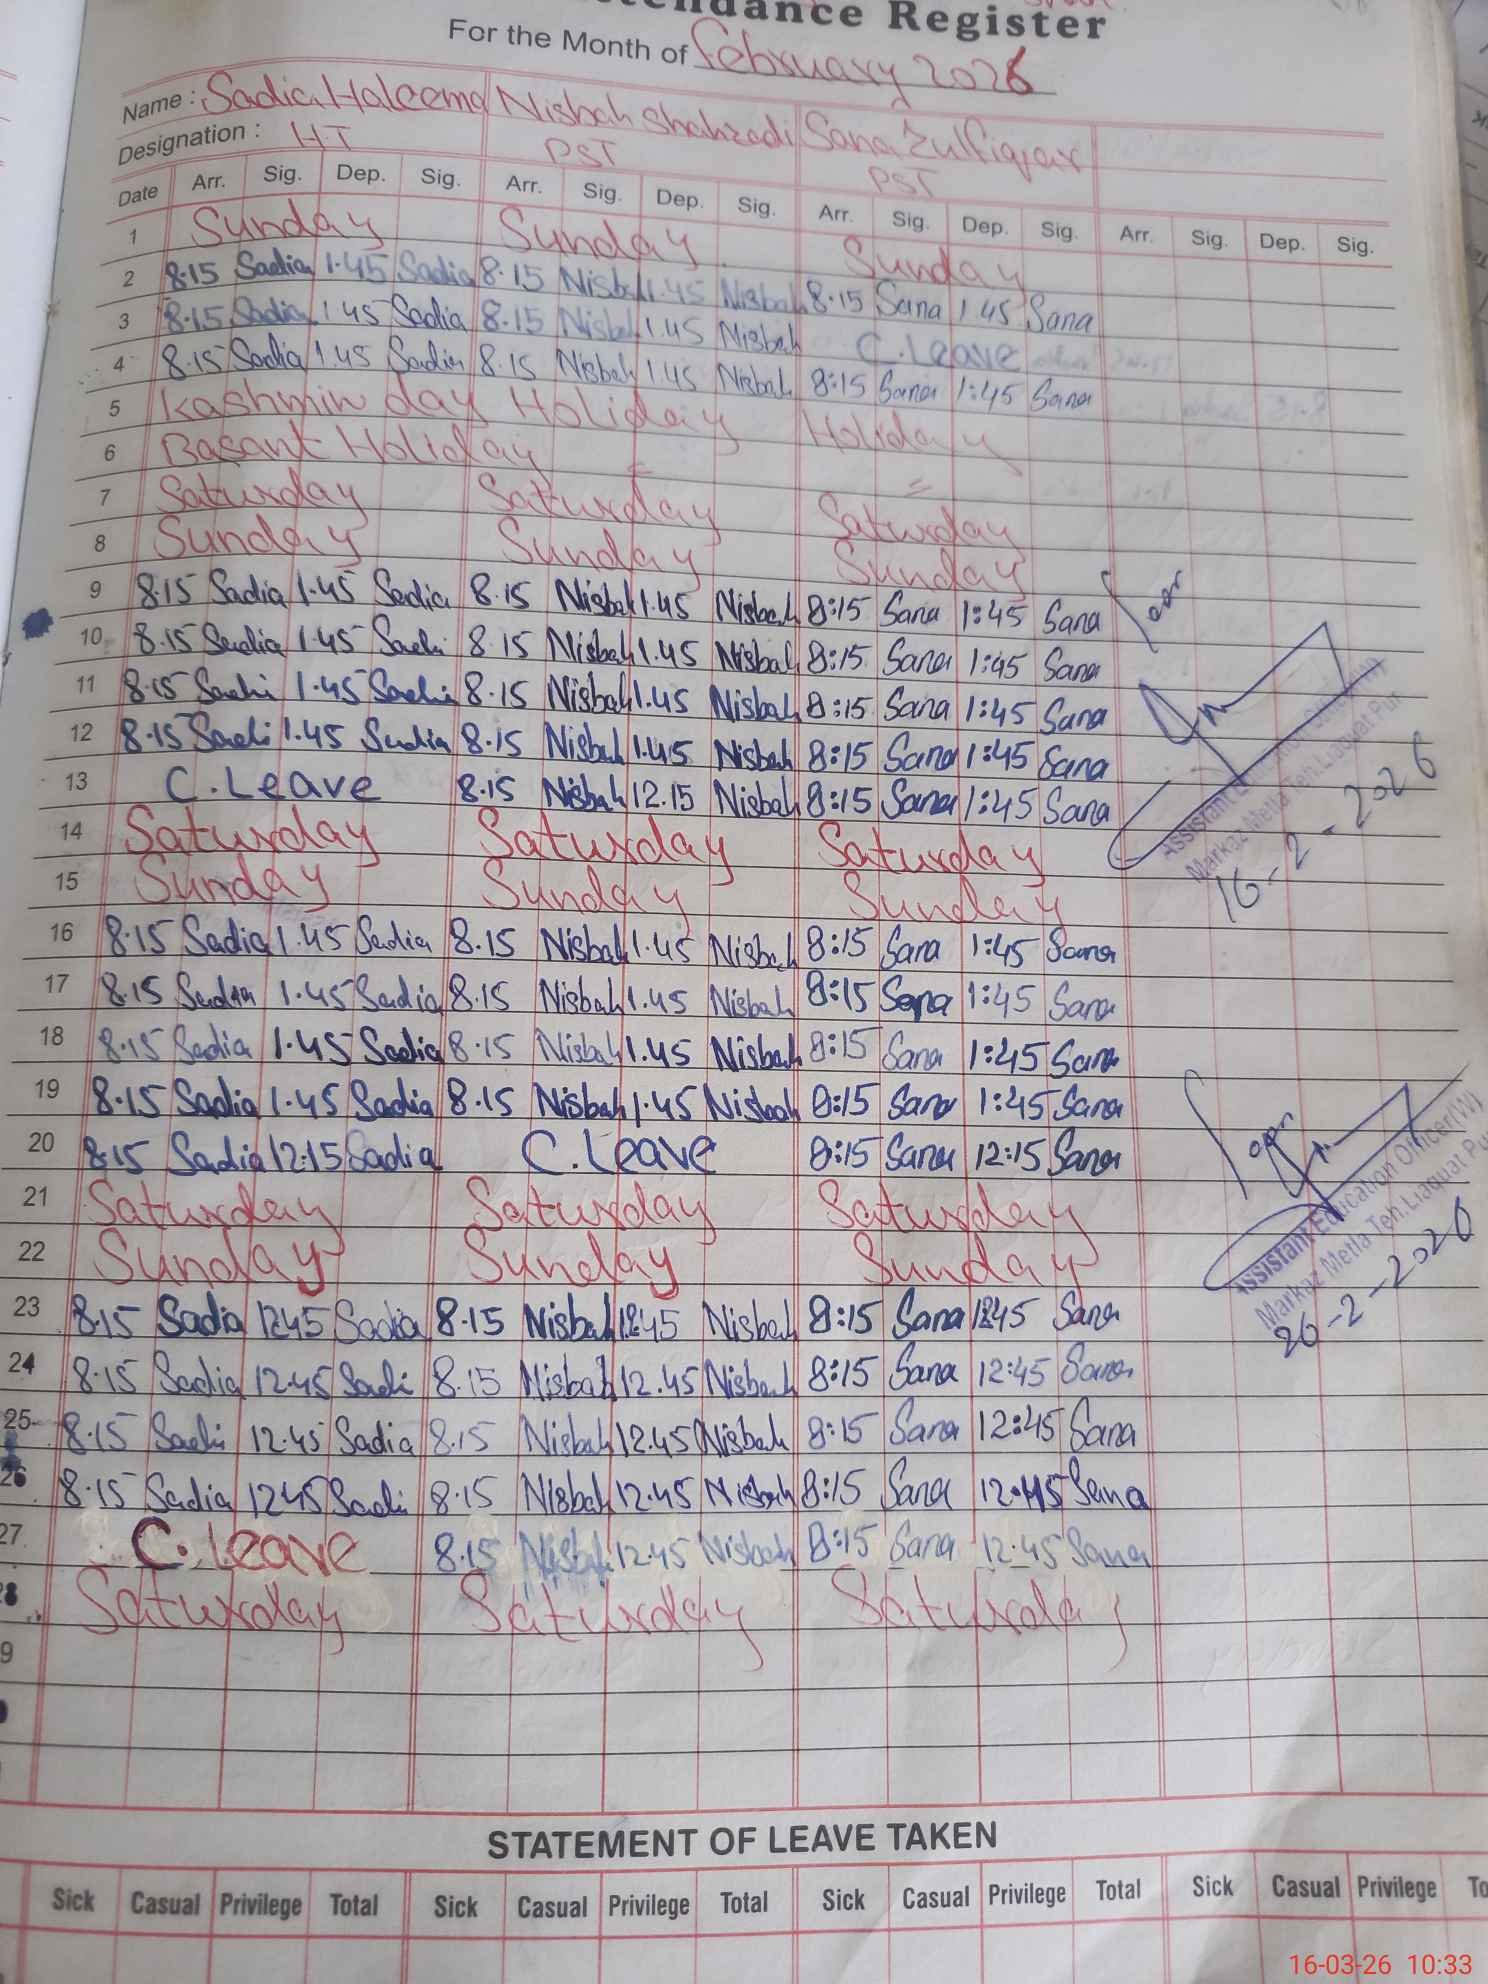 Attendance Register
For the Month of February 2026
Name : Sadia Haleema Nisbah Shahzadi Sana Zulfiqar
Designation : HT PST PST
Date Arr. Sig. Dep. Sig. Arr. Sig. Dep. Sig. Arr. Sig. Dep. Sig. Arr. Sig. Dep. Sig.
1 Sunday Sunday Sunday
2 8.15 Sadia 1.45 Sadia 8.15 Nisbah 1.45 Nisbah 8.15 Sana 1.45 Sana
3 8.15 Sadia 1.45 Sadia 8.15 Nisbah 1.45 Nisbah C.Leave
4 8.15 Sadia 1.45 Sadia 8.15 Nisbah 1.45 Nisbah 8:15 Sana 1:45 Sana
5 Kashmir day Holiday Holiday
6 Basant Holiday = =
7 Saturday Saturday Saturday
8 Sunday Sunday Sunday
9 8.15 Sadia 1.45 Sadia 8.15 Nisbah 1.45 Nisbah 8:15 Sana 1:45 Sana
10 8.15 Sadia 1.45 Sadi 8.15 Nisbah 1.45 Nisbah 8:15 Sana 1:45 Sana
11 8.15 Sadi 1.45 Sadia 8.15 Nisbah 1.45 Nisbah 8:15 Sana 1:45 Sana
12 8.15 Sadi 1.45 Sadia 8.15 Nisbah 1.45 Nisbah 8:15 Sana 1:45 Sana
13 C.Leave 8.15 Nisbah 12.15 Nisbah 8:15 Sana 1:45 Sana
Assistant Education Officer(W)
Markaz Metla Teh.Liaquat Pur
16-2-2026
14 Saturday Saturday Saturday
15 Sunday Sunday Sunday
16 8.15 Sadia 1.45 Sadia 8.15 Nisbah 1.45 Nisbah 8:15 Sana 1:45 Sana
17 8.15 Sadia 1.45 Sadia 8.15 Nisbah 1.45 Nisbah 8:15 Sana 1:45 Sana
18 8.15 Sadia 1.45 Sadia 8.15 Nisbah 1.45 Nisbah 8:15 Sana 1:45 Sana
19 8.15 Sadia 1.45 Sadia 8.15 Nisbah 1.45 Nisbah 8:15 Sana 1:45 Sana
20 8.15 Sadia 12.15 Sadia C.Leave 8:15 Sana 12:15 Sana
21 Saturday Saturday Saturday
22 Sunday Sunday Sunday
Assistant Education Officer(W)
Markaz Metla Teh.Liaquat Pur
26-2-2026
23 8.15 Sadia 1245 Sadia 8.15 Nisbah 12.45 Nisbah 8:15 Sana 1245 Sana
24 8.15 Sadia 12.45 Sadi 8.15 Nisbah 12.45 Nisbah 8:15 Sana 12:45 Sana
25 8.15 Sadi 12.45 Sadia 8.15 Nisbah 12.45 Nisbah 8:15 Sana 12:45 Sana
26 8.15 Sadia 1245 Sadi 8.15 Nisbah 12.45 Nisbah 8:15 Sana 12.45 Sana
27 C.Leave 8.15 Nisbah 12.45 Nisbah 8:15 Sana 12.45 Sana
8 Saturday Saturday Saturday
9
STATEMENT OF LEAVE TAKEN
Sick Casual Privilege Total Sick Casual Privilege Total Sick Casual Privilege Total Sick Casual Privilege To
16-03-26 10:33